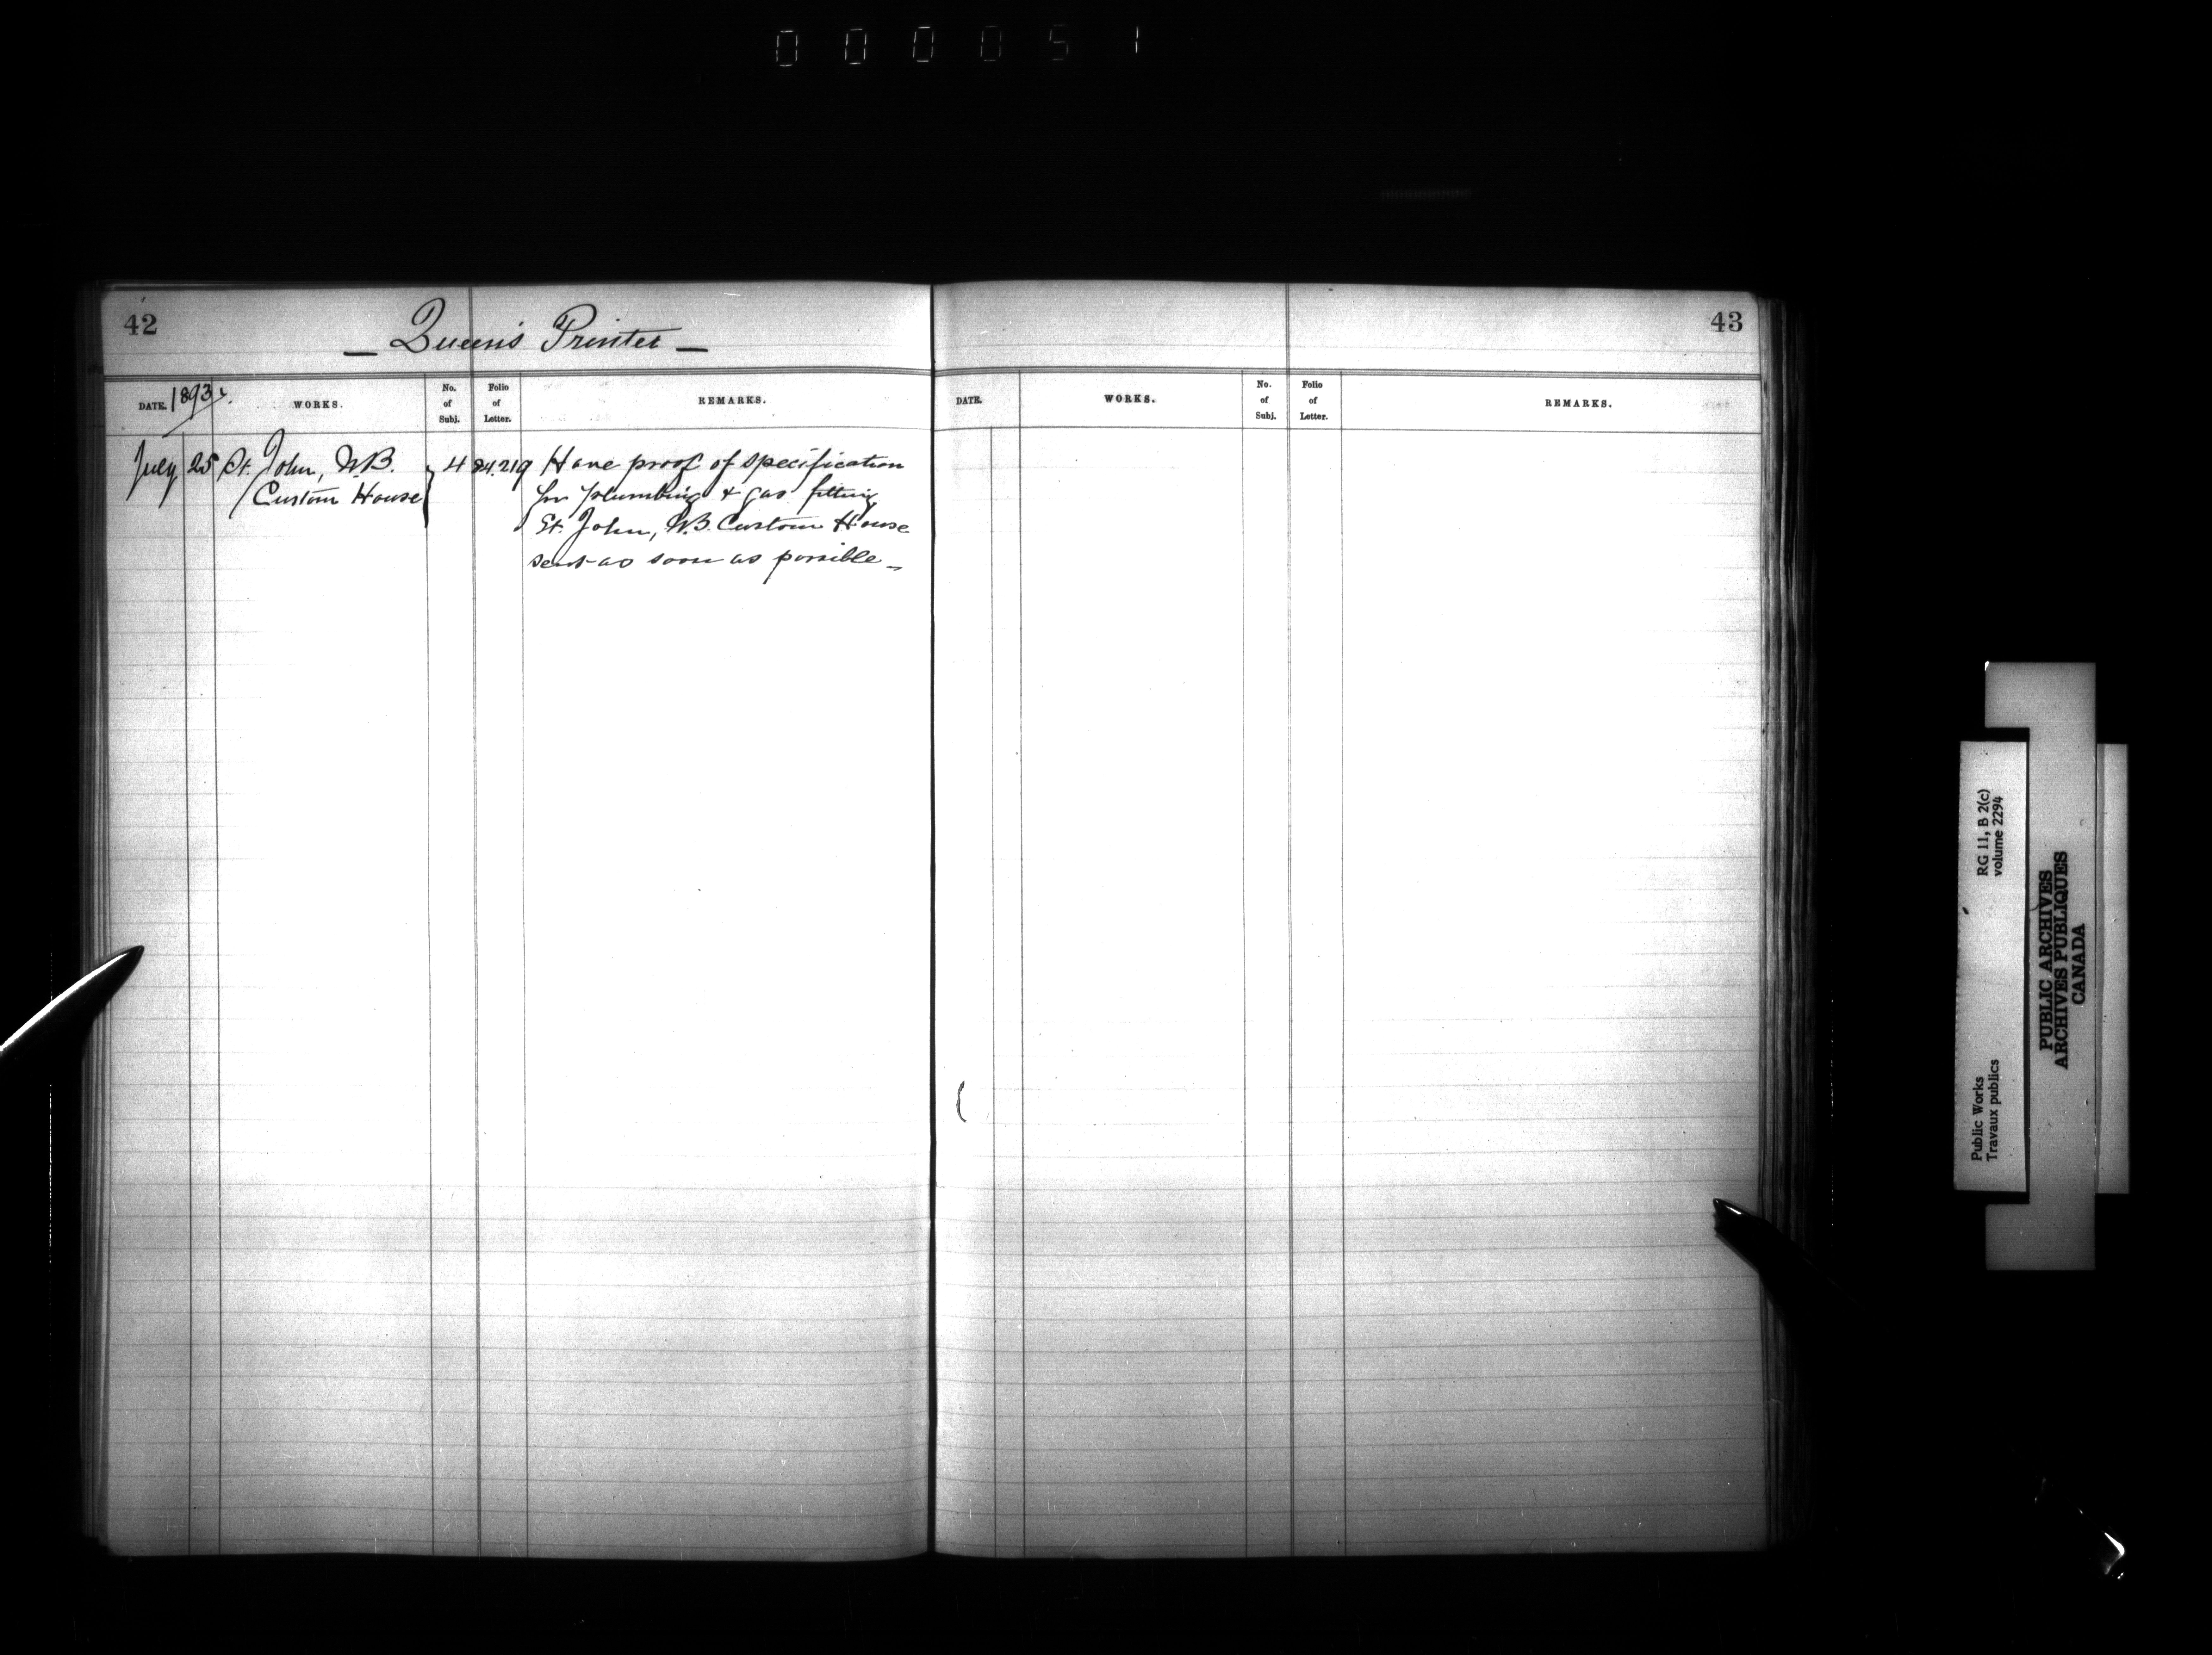 000051
42
— Queen's Printer —
DATE. 1893 WORKS. No. of Subj. Folio of Letter. REMARKS.
July 25 St. John, N.B. 4 84.219 Have proof of specification
Custom House for plumbing & gas fitting
St. John, N.B. Custom House
sent as soon as possible —
43
DATE. WORKS. No. of Subj. Folio of Letter. REMARKS.
RG 11, B 2(c)
volume 2294
Public Works
Travaux publics
PUBLIC ARCHIVES
ARCHIVES PUBLIQUES
CANADA